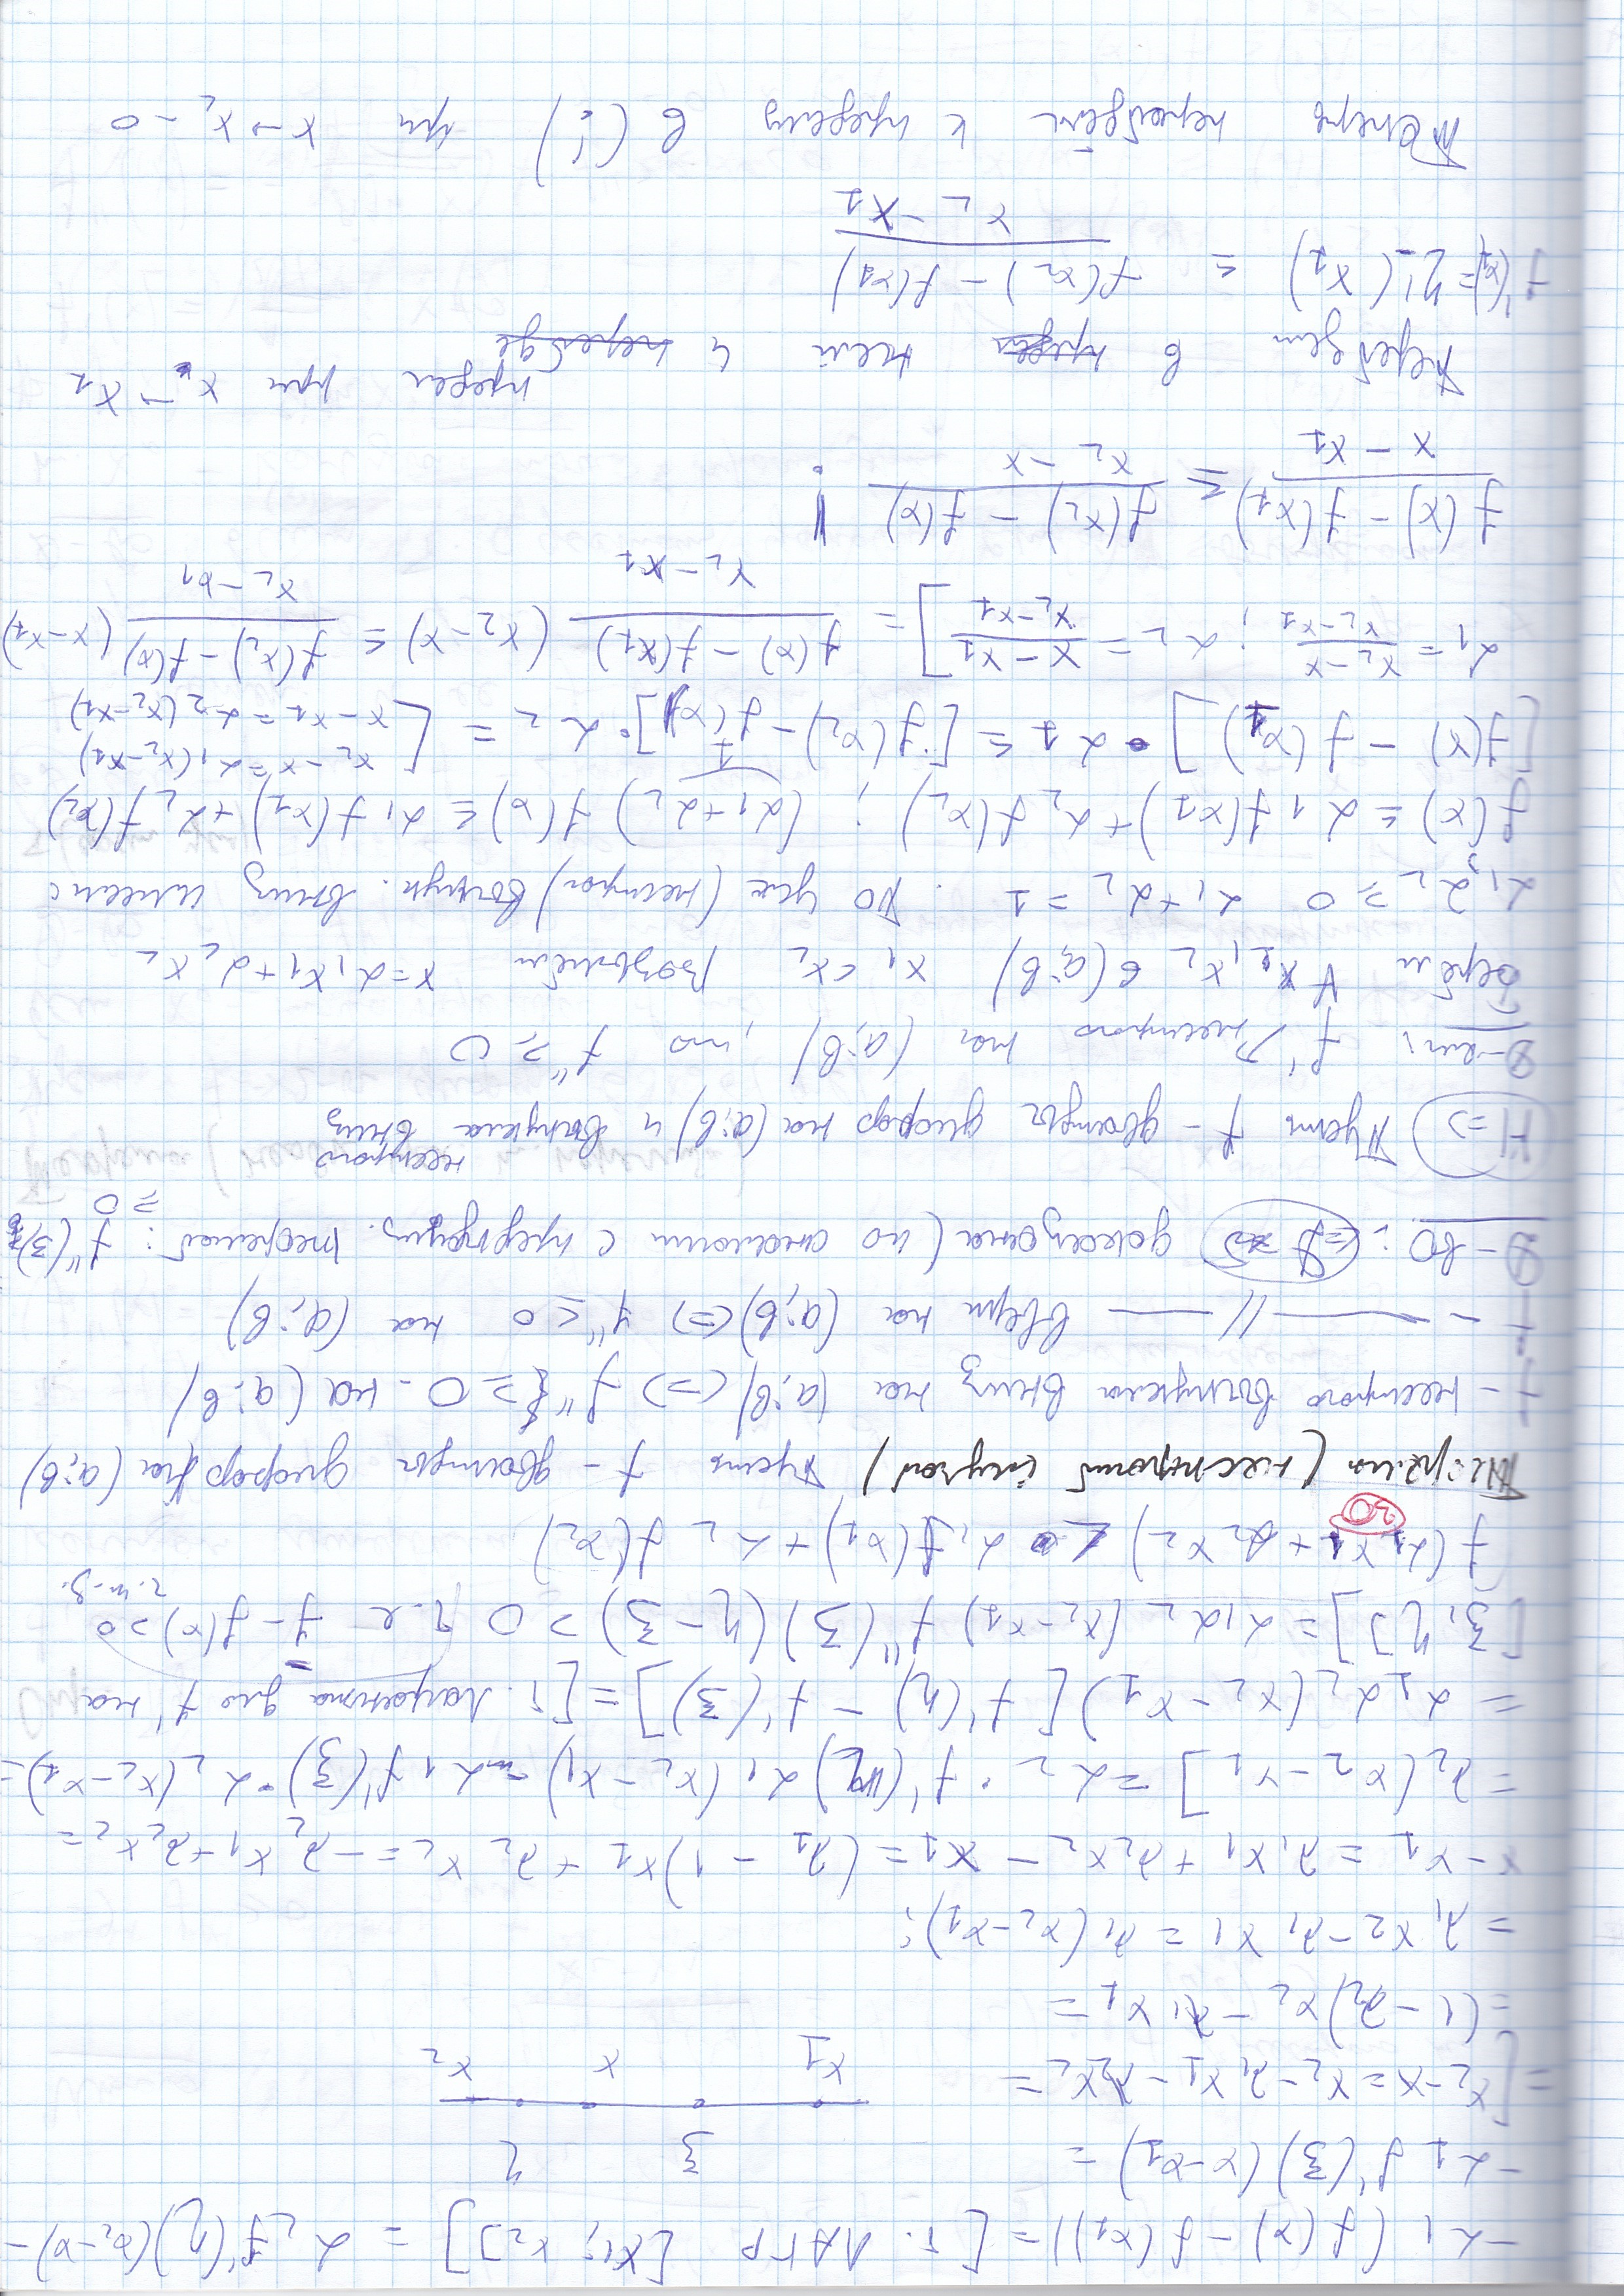 -α₁ (f(x) - f(x₁)) = [т. ЛАГР [x₁; x₂]] = α₂ f'(η)(x₂-x) -
-α₁ f'(ξ)(x-x₁) =
ξ η
x₁ x x₂
= [x₂-x = x₂ - λ₁x₁ - λ₂x₂ =
= (1-λ₂)x₂ - λ₁x₁ =
= λ₁x₂ - λ₁x₁ = λ₁(x₂-x₁);
x-x₁ = λ₁x₁ + λ₂x₂ - x₁ = (λ₁ - 1)x₁ + λ₂x₂ = -λ₂x₁ + λ₂x₂ =
= λ₂(x₂-x₁] = α₂ · f'(η) α₁(x₂-x₁) - α₁ f'(ξ) · α₂(x₂-x₁) =
= α₁α₂(x₂-x₁)[f'(η) - f'(ξ)] = [т. Лагранжа для f' на
[ξ, η]] = α₁α₂(x₂-x₁) f''(ξ)(η-ξ) > 0 т.е f - f(x) > 0
ч.т.д.
f(α₁x₁ + α₂x₂) < α₁f(x₁) + α₂ f(x₂)
30
Теорема (нестрогий случай) Пусть f - дважды дифф на (a;b)
f - нестрого выпукла вниз на (a;b) <=> f'' ≥ 0 на (a;b)
f - —— // —— вверх на (a;b) <=> f'' ≤ 0 на (a;b)
Д-во: <= Д доказана (по аналогии с предыдущ. теоремой: f''(ξ)
≥ 0
Н => Пусть f - дважды дифф на (a;b) и выпукла нестрого вниз
Д-ем: f' ↗ нестрого на (a;b), то f'' ≥ 0
Берём ∀ x₁, x₂ ∈ (a;b) x₁ < x₂ Возьмём x = α₁x₁ + α₂x₂
α₁, α₂ ≥ 0 α₁ + α₂ = 1. По усл (нестрог) выпук. вниз имеем:
f(x) ≤ α₁ f(x₁) + α₂ f(x₂); (α₁+α₂) f(x) ≤ α₁ f(x₁) + α₂ f(x₂)
1
[f(x) - f(x₁)] · α₁ ≤ [f(x₂) - f(x)] · α₂ = [x₂-x = α₁(x₂-x₁)
x-x₁ = α₂(x₂-x₁)
α₁ = (x₂-x)/(x₂-x₁); α₂ = (x-x₁)/(x₂-x₁)] = (f(x) - f(x₁))/(x₂-x₁) (x₂-x) ≤ (f(x₂) - f(x))/(x₂-x₁) (x-x₁)
(f(x) - f(x₁))/(x - x₁) ≤ (f(x₂) - f(x))/(x₂ - x) !
Перейдем в нем и предел при x → x₁
f'(x₁) = (x₁) ≤ (f(x₂) - f(x₁))/(x₂ - x₁)
Теперь перейдём к пределу в (!) при x → x₂ - 0